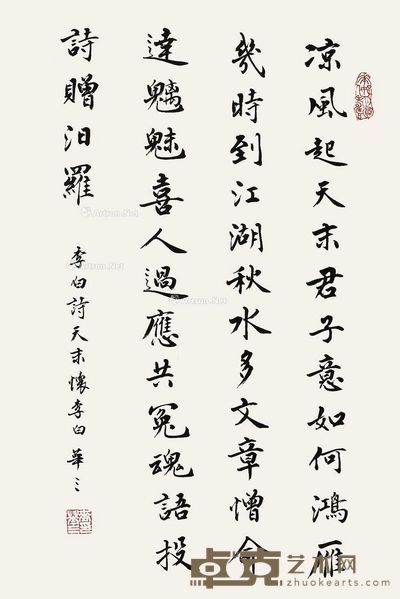 涼風起天末君子意如何鴻雁
幾時到江湖秋水多文章憎命
達魑魅喜人過應共冤魂語投
詩贈汨羅
李白詩天末懷李白 華
Artron.Net
Artron.Net
Artron.Net
卓克艺术网
zhuokearts.com